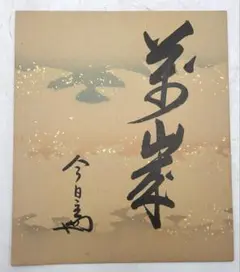 萬歳
今日庵